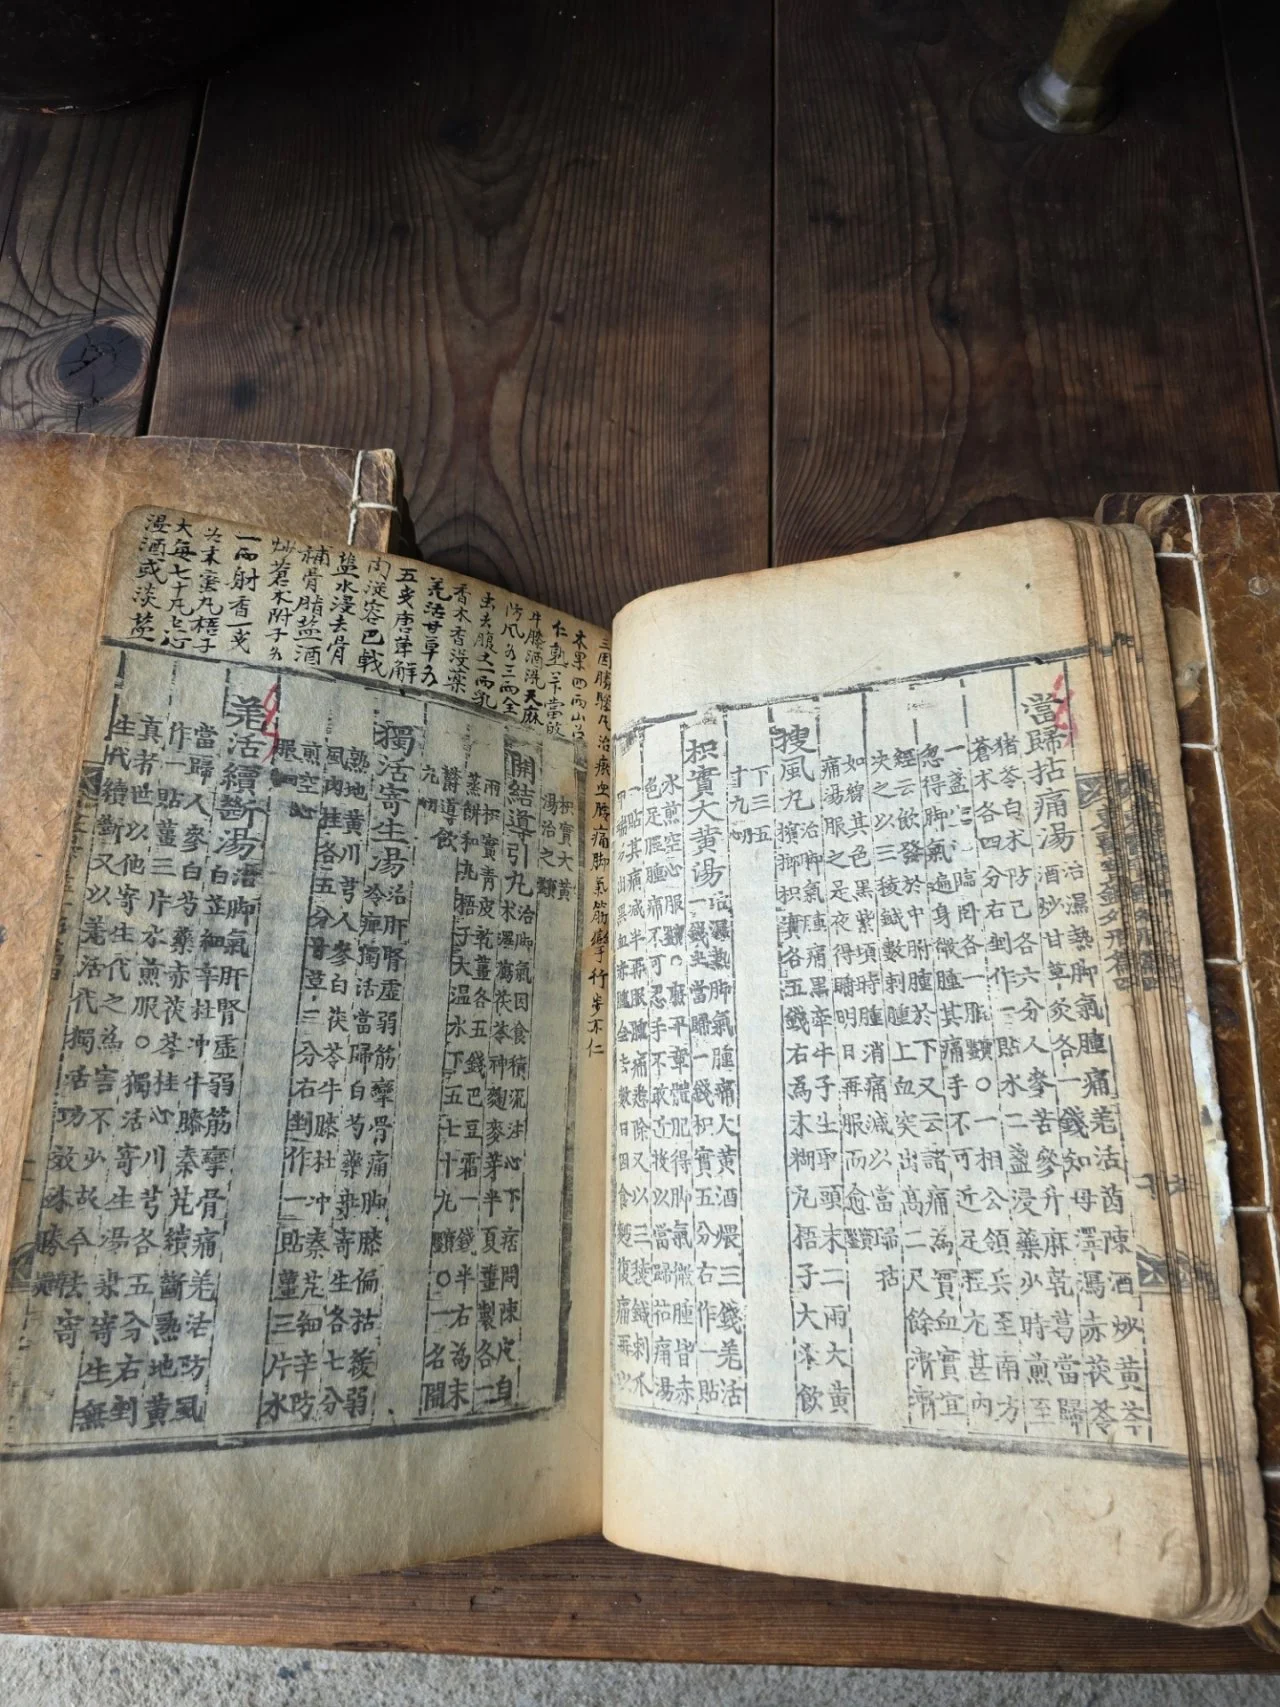 當歸拈痛湯
治濕熱脚氣腫痛羌活茵陳酒炒黃芩
酒炒甘草灸各一錢知母澤瀉赤茯苓
猪苓白朮防己各六分人參苦參升麻乾葛當歸
蒼朮各四分右剉作一貼水二盞浸藥少時煎至
一盞空心臨臥各一服○一相公領兵至南方
忽得脚氣遍身微腫其痛手不可近足脛尤甚內
經云飮發於中胕腫於下又云諸痛爲實血實宜
決之以三稜鍼數刺腫上血突出高二尺餘漸漸
如線其色黑紫頃時腫消痛減以當歸拈
痛湯服之是夜得睡明日再服而愈
搜風丸
治脚氣腫痛黑牽牛子生取頭末二兩大黃
檳榔枳實各五錢右爲末糊丸梧子大米飮
下三五
十丸
枳實大黃湯
治濕熱脚氣腫痛大黃酒煨三錢羌活
一錢半當歸一錢枳實五分右作一貼
水煎空心服○廢平章體肥得脚氣搬腫皆赤
色足脛腫痛不可忍手不敢近以當歸拈痛湯
一貼其痛減半再服腫痛悉除又以三稜鍼刺爪
甲端多出黑血赤腫全去數日因食麪復痛再以
枳實大黃
湯治之
開結導引丸
治脚氣因食積流注心下痞悶陳皮白
朮澤瀉茯苓神麴麥芽半夏薑製各一
兩枳實靑皮乾薑各五錢巴豆霜一錢半右爲末
蒸餠和丸梧子大溫水下五七十丸○一名開
導飮
丸
獨活寄生湯
治肝腎虛弱筋攣骨痛脚膝偏枯緩弱
冷痺獨活當歸白芍藥桑寄生各七分
熟地黃川芎人參白茯苓牛膝杜冲秦艽細辛防
風肉桂各五分甘草三分右剉作一貼薑三片水
煎空心
服
羌活續斷湯
治脚氣肝腎虛弱筋攣骨痛羌活防風
白芷細辛杜冲牛膝秦艽續斷熟地黃
當歸人參白芍藥赤茯苓桂心川芎各五分右剉
作一貼薑三片水煎服○獨活寄生湯桑寄生無
眞者世以他寄生代之爲害不少故今去寄
生代續斷又以羌活代獨活功效殊勝
治虛血腰痛脚氣筋攣行步不仁
木果四兩
牛膝酒洗天麻
防風各三兩全
虫去腹土一兩乳
香木香沒藥
羌活甘草各
五戔唐草薢
肉從容巴戟
盐水浸去骨
補骨脂盐酒
炒蒼朮附子各
一兩射香一戔
爲末蜜丸梧子
大每七十丸空心
溫酒或淡盐